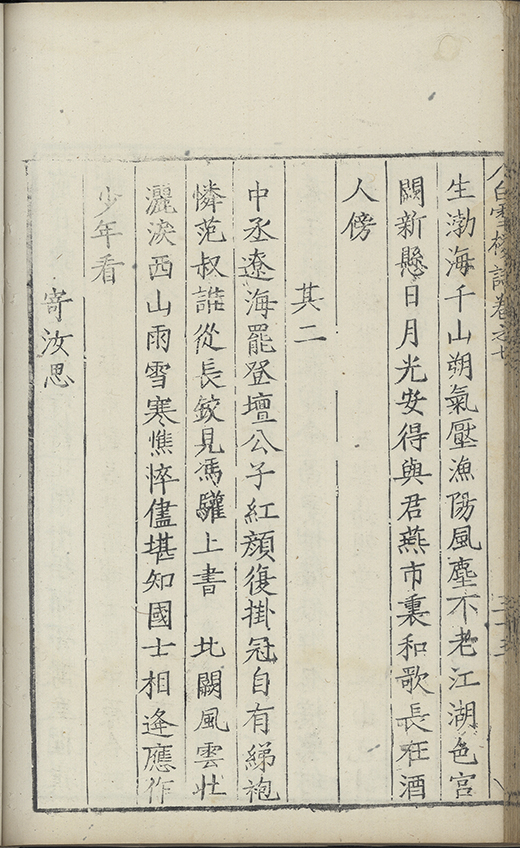 白雪樓詩卷之七
生渤海千山朔氣壓漁陽風塵不老江湖色宫
闕新懸日月光安得與君燕市裏和歌長在酒
人傍
其二
中丞遼海罷登壇公子紅顏復掛冠自有綈袍
憐范叔誰從長鋏見馮驩上書 北闕風雲壯
灑淚西山雨雪寒憔悴儘堪知國士相逢應作
少年看
寄汝思